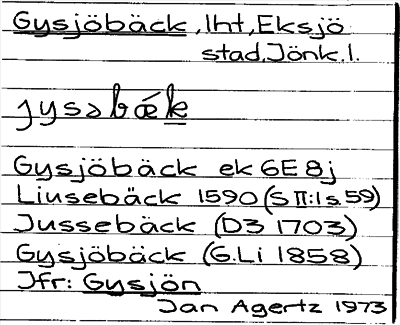 Gysjöbäck, lht, Eksjö
stad, Jönk. l.
jysəbǽk
Gysjöbäck ek 6E8j
Liusebäck 1590 (S II:1 s. 59)
Jussebäck (D3 1703)
Gysjöbäck (G.Li 1858)
Jfr: Gysjön
Jan Agertz 1973